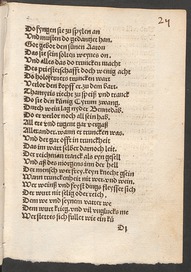 24
Do fyngen sie zu spylen an
Und musten do gedantzet han.
Got gebot den sünen Aaron
Das sie sein soltent weynes on.
Und alles das do trincken macht
Des priesterschafft doch wenig acht
Do holofernes truncken wart
Verlor den kopff er zu dem bart.
Thamyris richt zu speiß und tranck
Do sie den künig Cyrum zwang.
Durch wein lag nyder Bennedab,
Do er verlor noch all sein hab,
All er und tugent gar vergaß
Allexander, wann er truncken was.
Und det gar offt in trunckheit
Das im wart selber darnoch leit.
Der reichman tranck als eyn gesell
Und aß des morgens inn der hell
Der mensch wer frey, keyn knecht gesein
Wann trunckenheit nit wer und wein.
Wer weinß und feyßt dings fleysset sich
Der wurt nit selig oder reich.
Dem we und seynem vatter we
Dem wurt krieg und vil unglucks me
Wer stetes sich füllet wie ein kü
D j